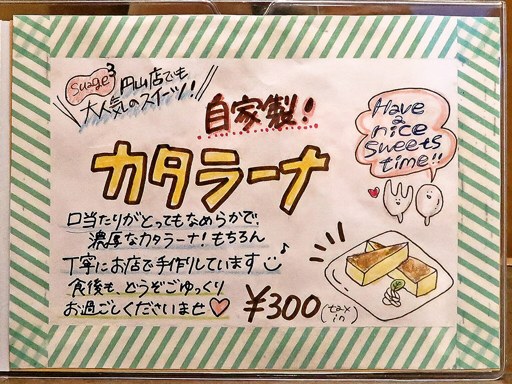 suage³ 円山店でも
大人気のスイーツ！
自家製！
カタラーナ
Have
a
nice
sweets
time!!
口当たりがとってもなめらかで、
濃厚なカタラーナ！もちろん
丁寧にお店で手作りしています♪
食後も、どうぞごゆっくり
お過ごしくださいませ♡
¥300(tax in)